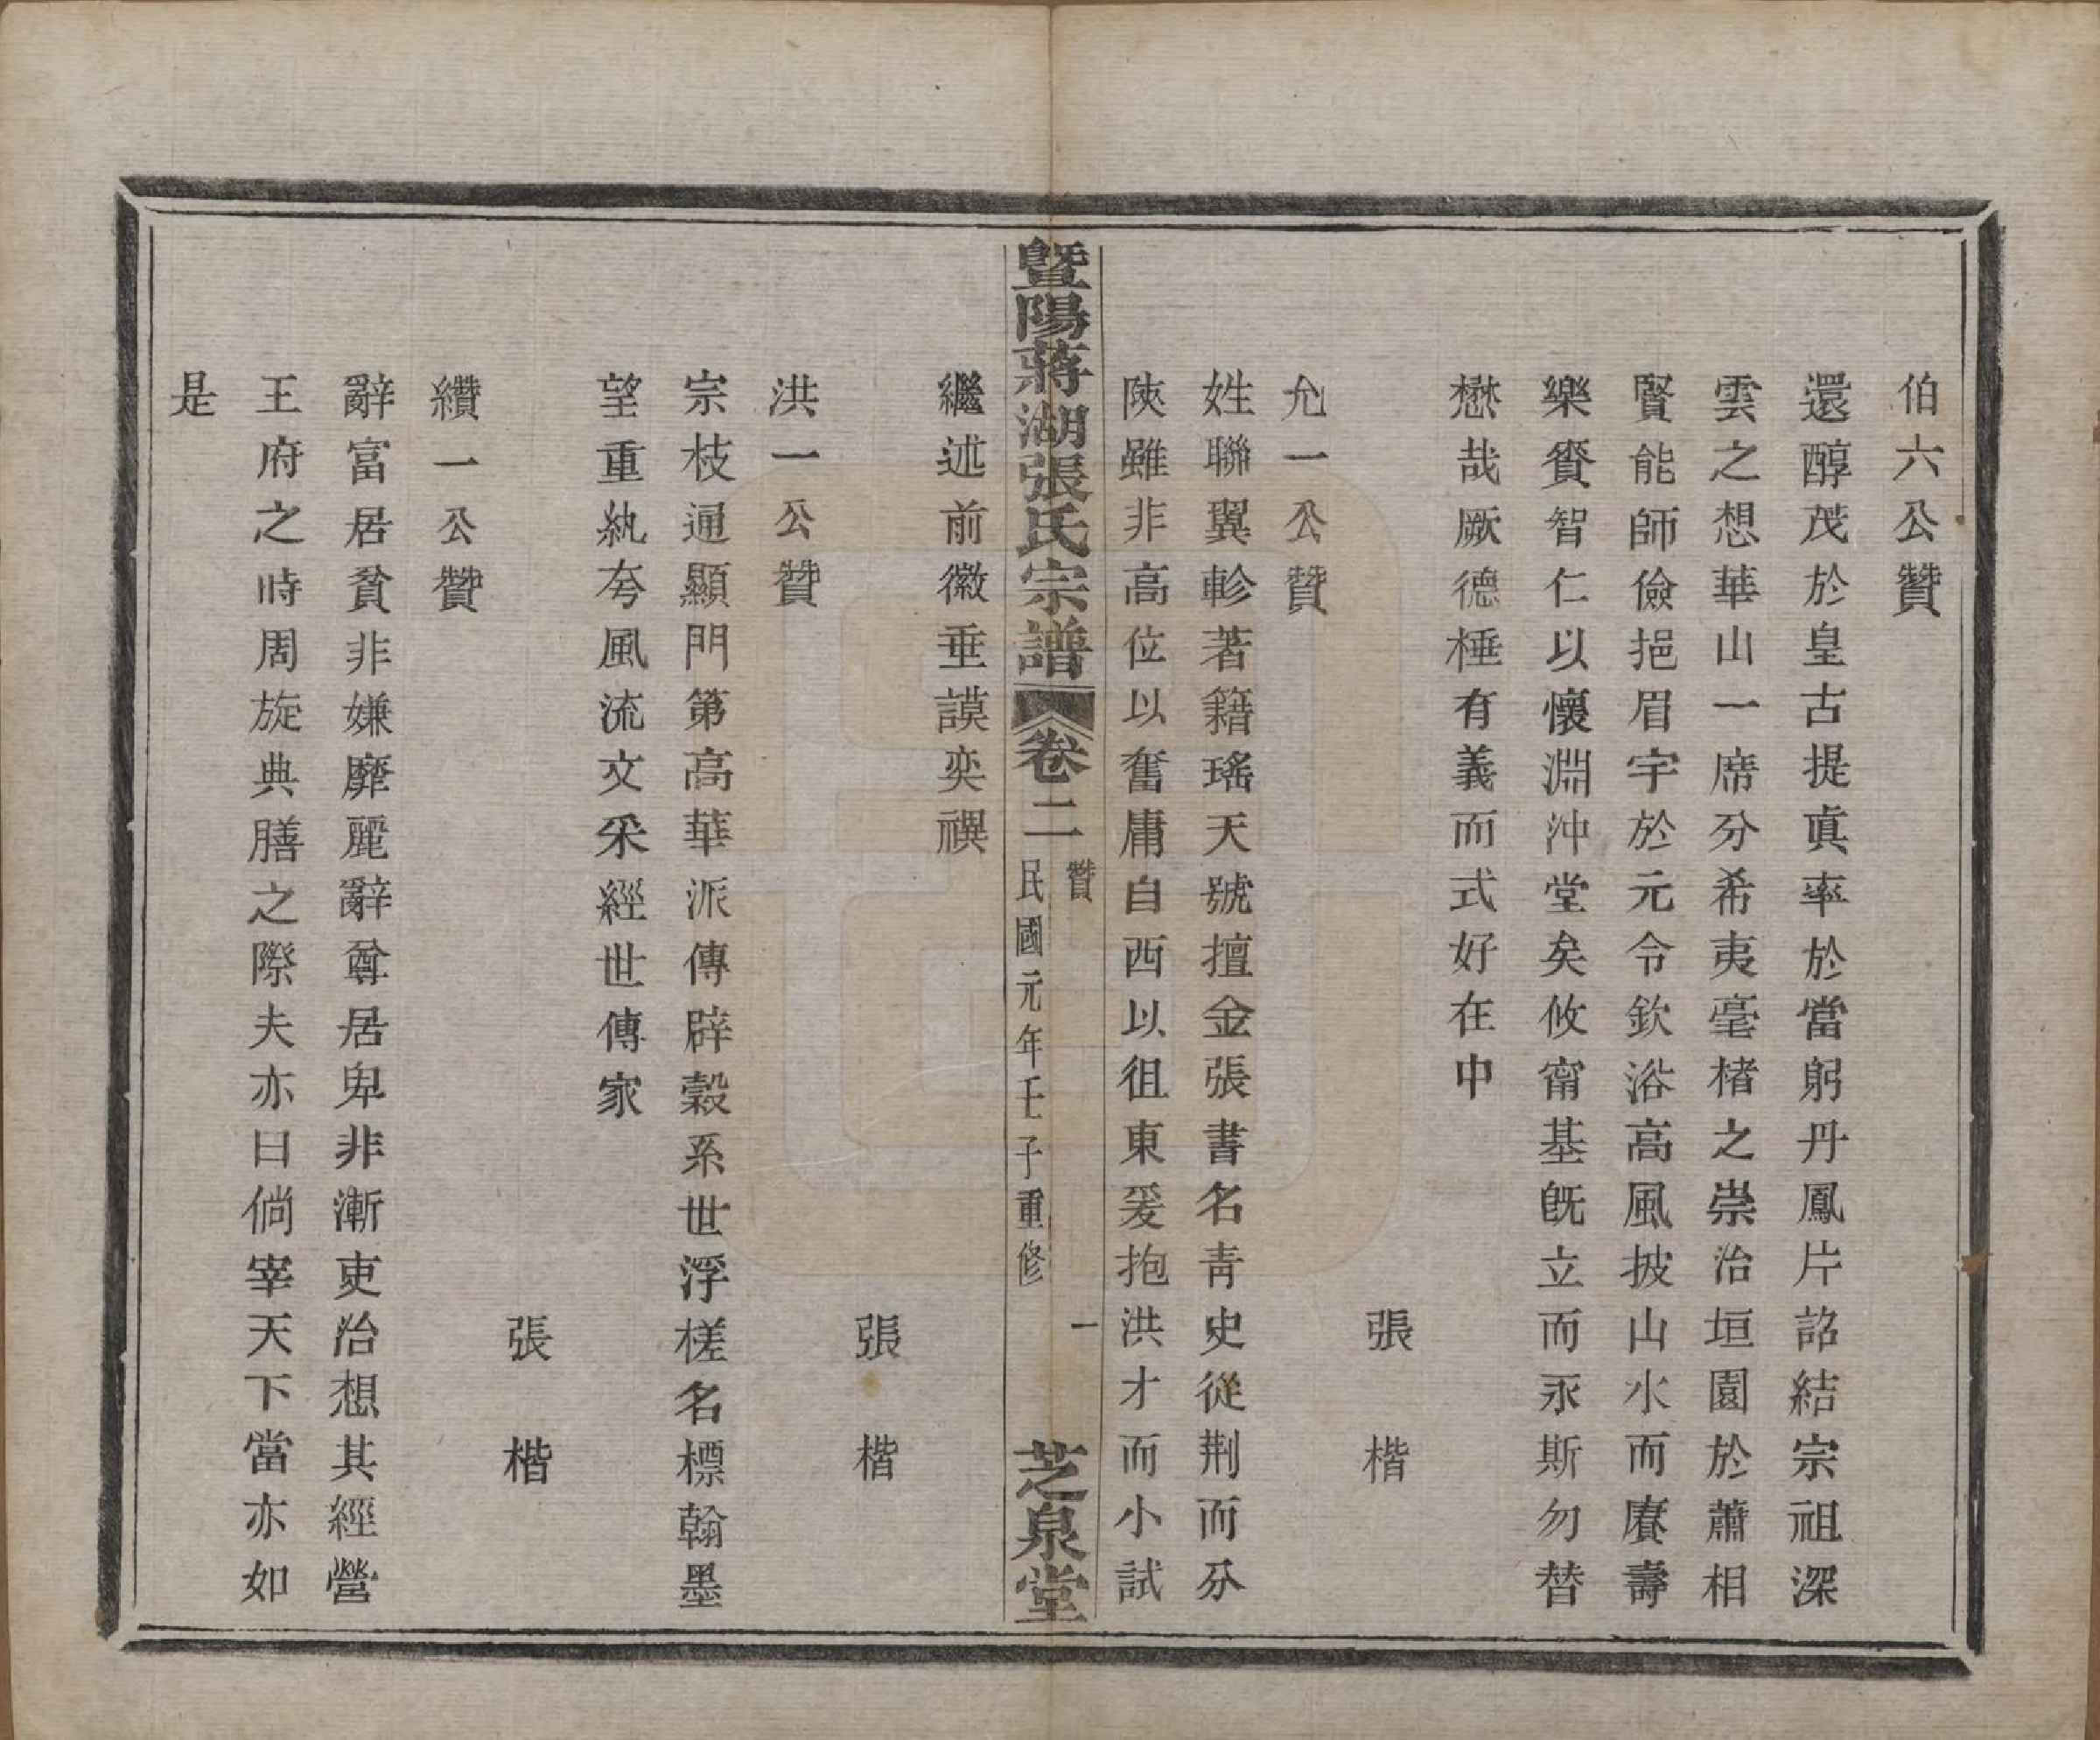 伯六公贊
還醇茂於皇古提眞率於當躬丹鳳片詔結宗祖深
雲之想華山一席分希夷毫楮之崇治垣園於蕭相
賢能師儉挹眉宇於元令欽浴高風披山水而賡壽
樂賚智仁以懷淵沖堂矣攸甯基旣立而永斯勿替
懋哉厥德棰有義而式好在中
張楷
允一公贊
姓聯翼軫著籍瑤天號擅金張書名靑史從荆而分
陝雖非高位以奮庸自西以徂東爰抱洪才而小試
暨陽蔣湖張氏宗譜
卷二
贊
民國元年壬子重修
一
芝泉堂
繼述前徽垂謨奕禩
張楷
洪一公贊
宗枝通顯門第高華派傳辟穀系世浮槎名標翰墨
望重紈夸風流文采經世傳家
張楷
纘一公贊
辭富居貧非嫌靡麗辭尊居卑非漸吏治想其經營
王府之時周旋典膳之際夫亦曰倘宰天下當亦如
是